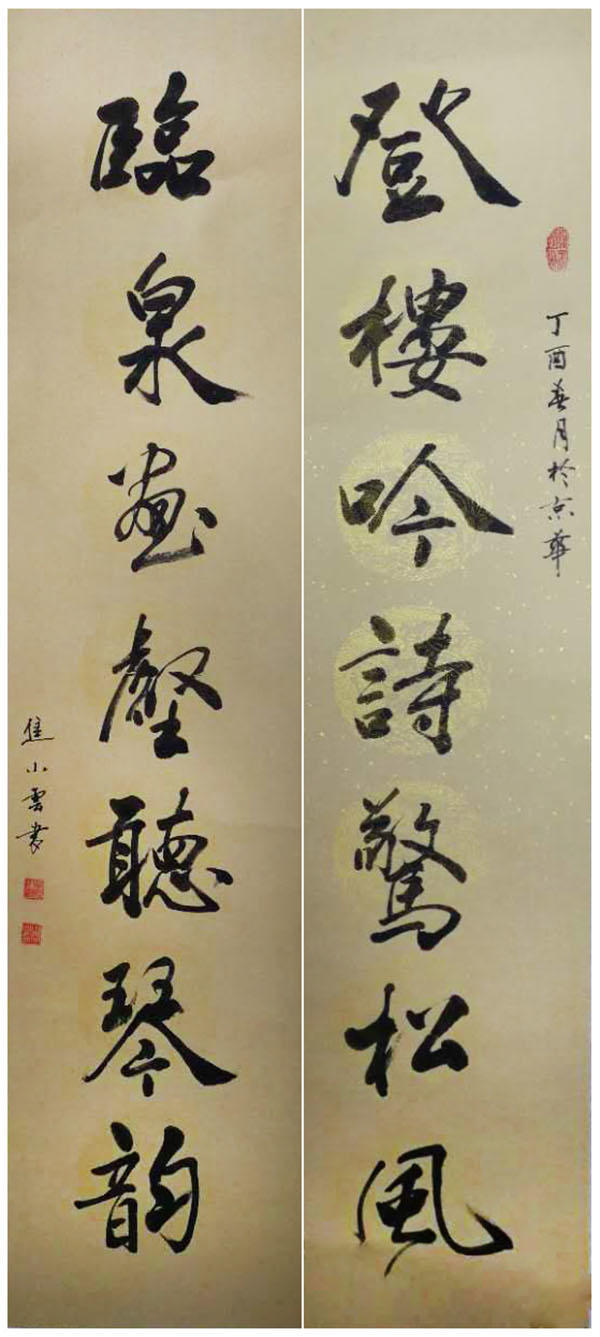 丁酉春月於京華
登樓吟詩驚松風
臨泉畫壑聽琴韵
焦小雲書